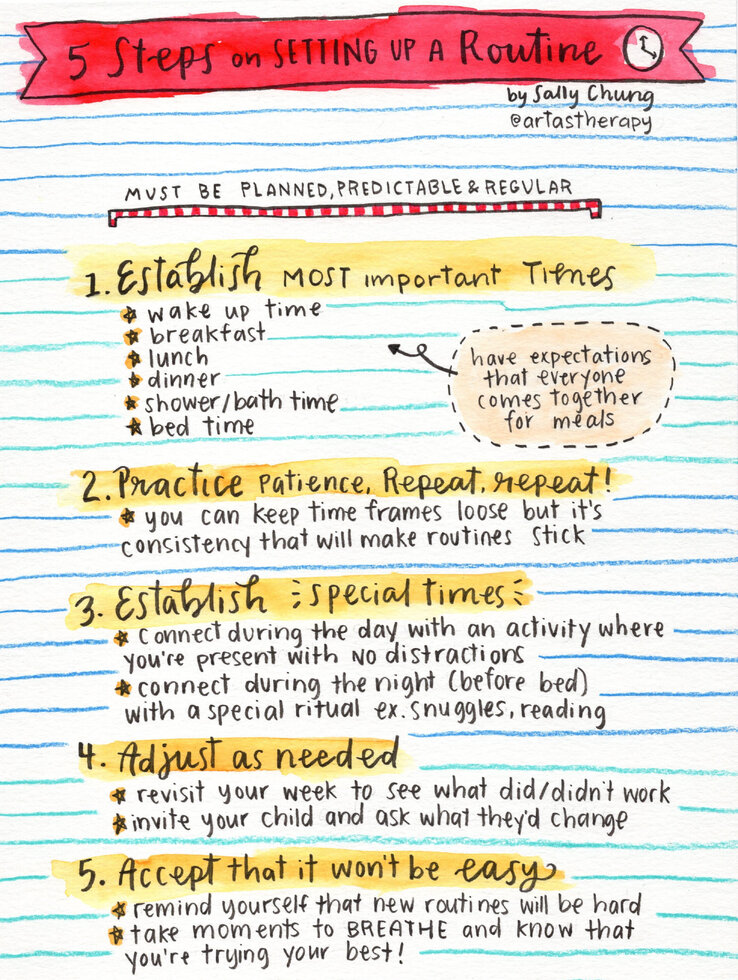 5 Steps on SETTING UP A Routine
by Sally Chung
@artastherapy
MUST BE PLANNED, PREDICTABLE & REGULAR
1. Establish MOST important Times
wake up time
breakfast
lunch
dinner
shower/bath time
bed time
have expectations
that everyone
comes together
for meals
2. Practice Patience, Repeat, repeat!
you can keep time frames loose but it's
consistency that will make routines stick
3. Establish special times
connect during the day with an activity where
you're present with no distractions
connect during the night (before bed)
with a special ritual ex. snuggles, reading
4. Adjust as needed
revisit your week to see what did/didn't work
invite your child and ask what they'd change
5. Accept that it won't be easy
remind yourself that new routines will be hard
take moments to BREATHE and know that
you're trying your best!